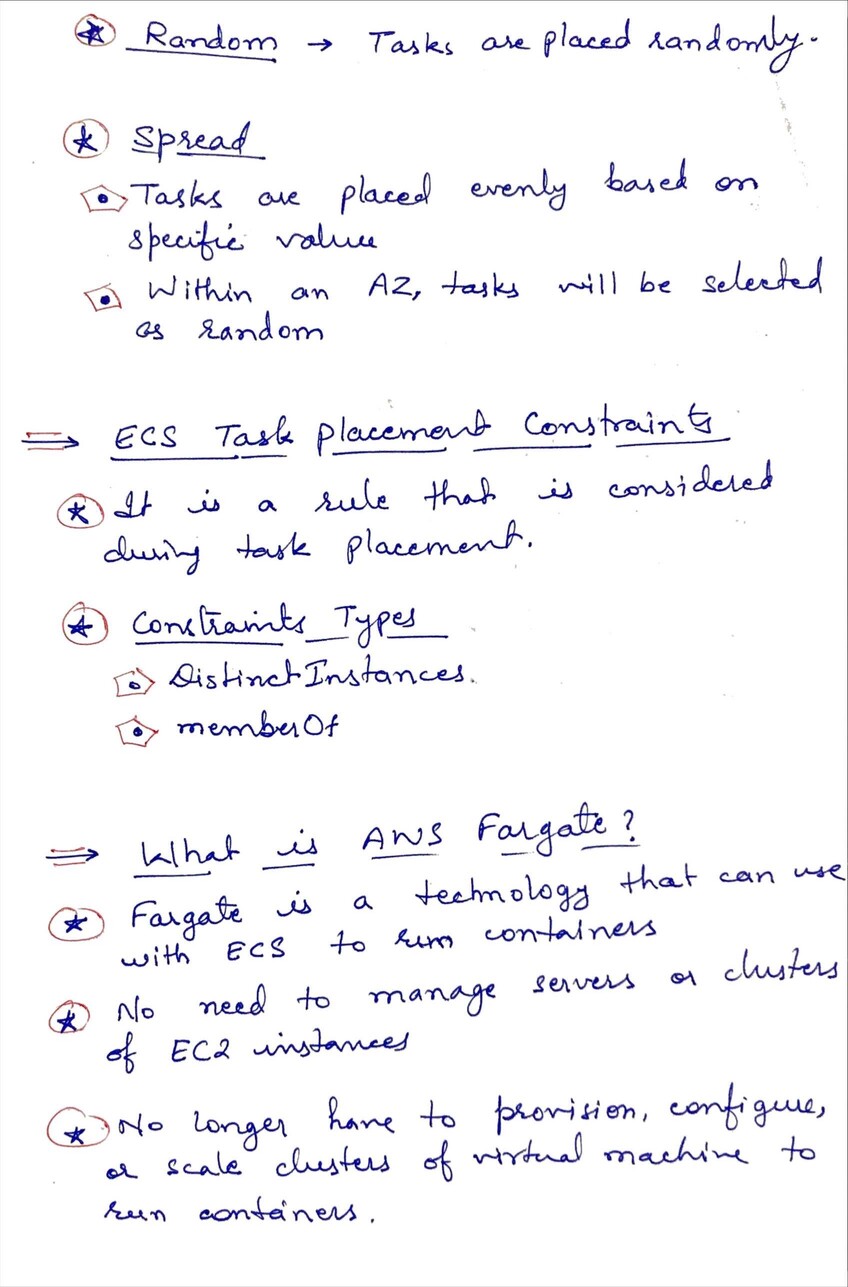 Random → Tasks are placed randomly.
Spread
Tasks are placed evenly based on
specific value
Within an AZ, tasks will be selected
as random
⇒ ECS Task Placement Constraints
It is a rule that is considered
during task placement.
Constraints Types
DistinctInstances.
memberOf
⇒ What is AWS Fargate?
Fargate is a technology that can use
with ECS to run containers
No need to manage servers or clusters
of EC2 instances
No longer have to provision, configure,
or scale clusters of virtual machine to
run containers.